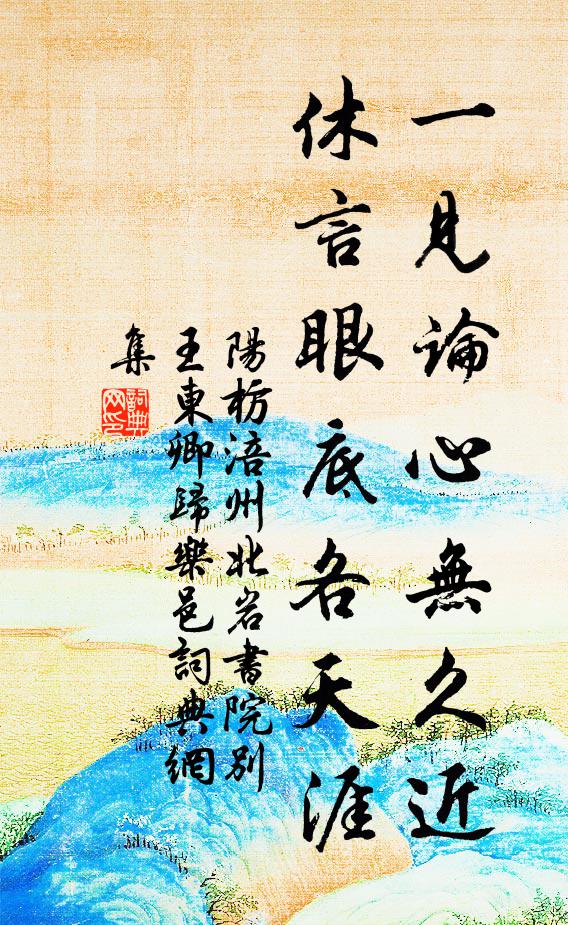 一見論心無久近
休言眼底各天涯
陽枋涪州北岩書院別
王東卿歸樂邑詞典網
集
詞典網印